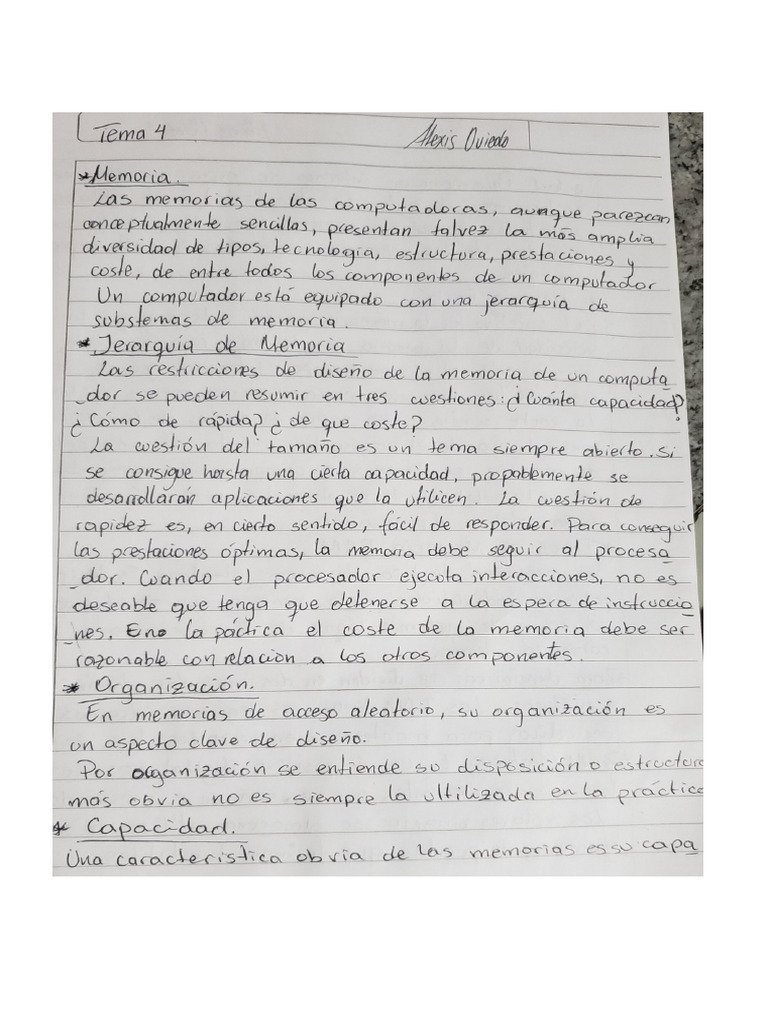 Tema 4
Alexis Oviedo
*Memoria.
Las memorias de las computadoras, aunque parezcan
conceptualmente sencillas, presentan talvez la más amplia
diversidad de tipos, tecnología, estructura, prestaciones y
coste, de entre todos los componentes de un computador
Un computador está equipado con una jerarquía de
substemas de memoria.
* Jerarquía de Memoria
Las restricciones de diseño de la memoria de un computa
dor se pueden resumir en tres cuestiones: ¿Cuánta capacidad?
¿Cómo de rápida? ¿de que coste?
La cuestión del tamaño es un tema siempre abierto. Si
se consigue hasta una cierta capacidad, propablemente se
desarrollarán aplicaciones que la utilicen. La cuestión de
rapidez es, en cierto sentido, fácil de responder. Para conseguir
las prestaciones óptimas, la memoria debe seguir al procesa
dor. Cuando el procesador ejecuta interacciones, no es
deseable que tenga que detenerse a la espera de instruccio
nes. Eno la páctica el coste de la memoria debe ser
razonable con relacion a los otros componentes.
* Organización.
En memorias de acceso aleatorio, su organización es
un aspecto clave de diseño.
Por organización se entiende su disposición o estructura
más obvia no es siempre la ultilizada en la práctica
* Capacidad.
Una característica obvia de las memorias es su capa